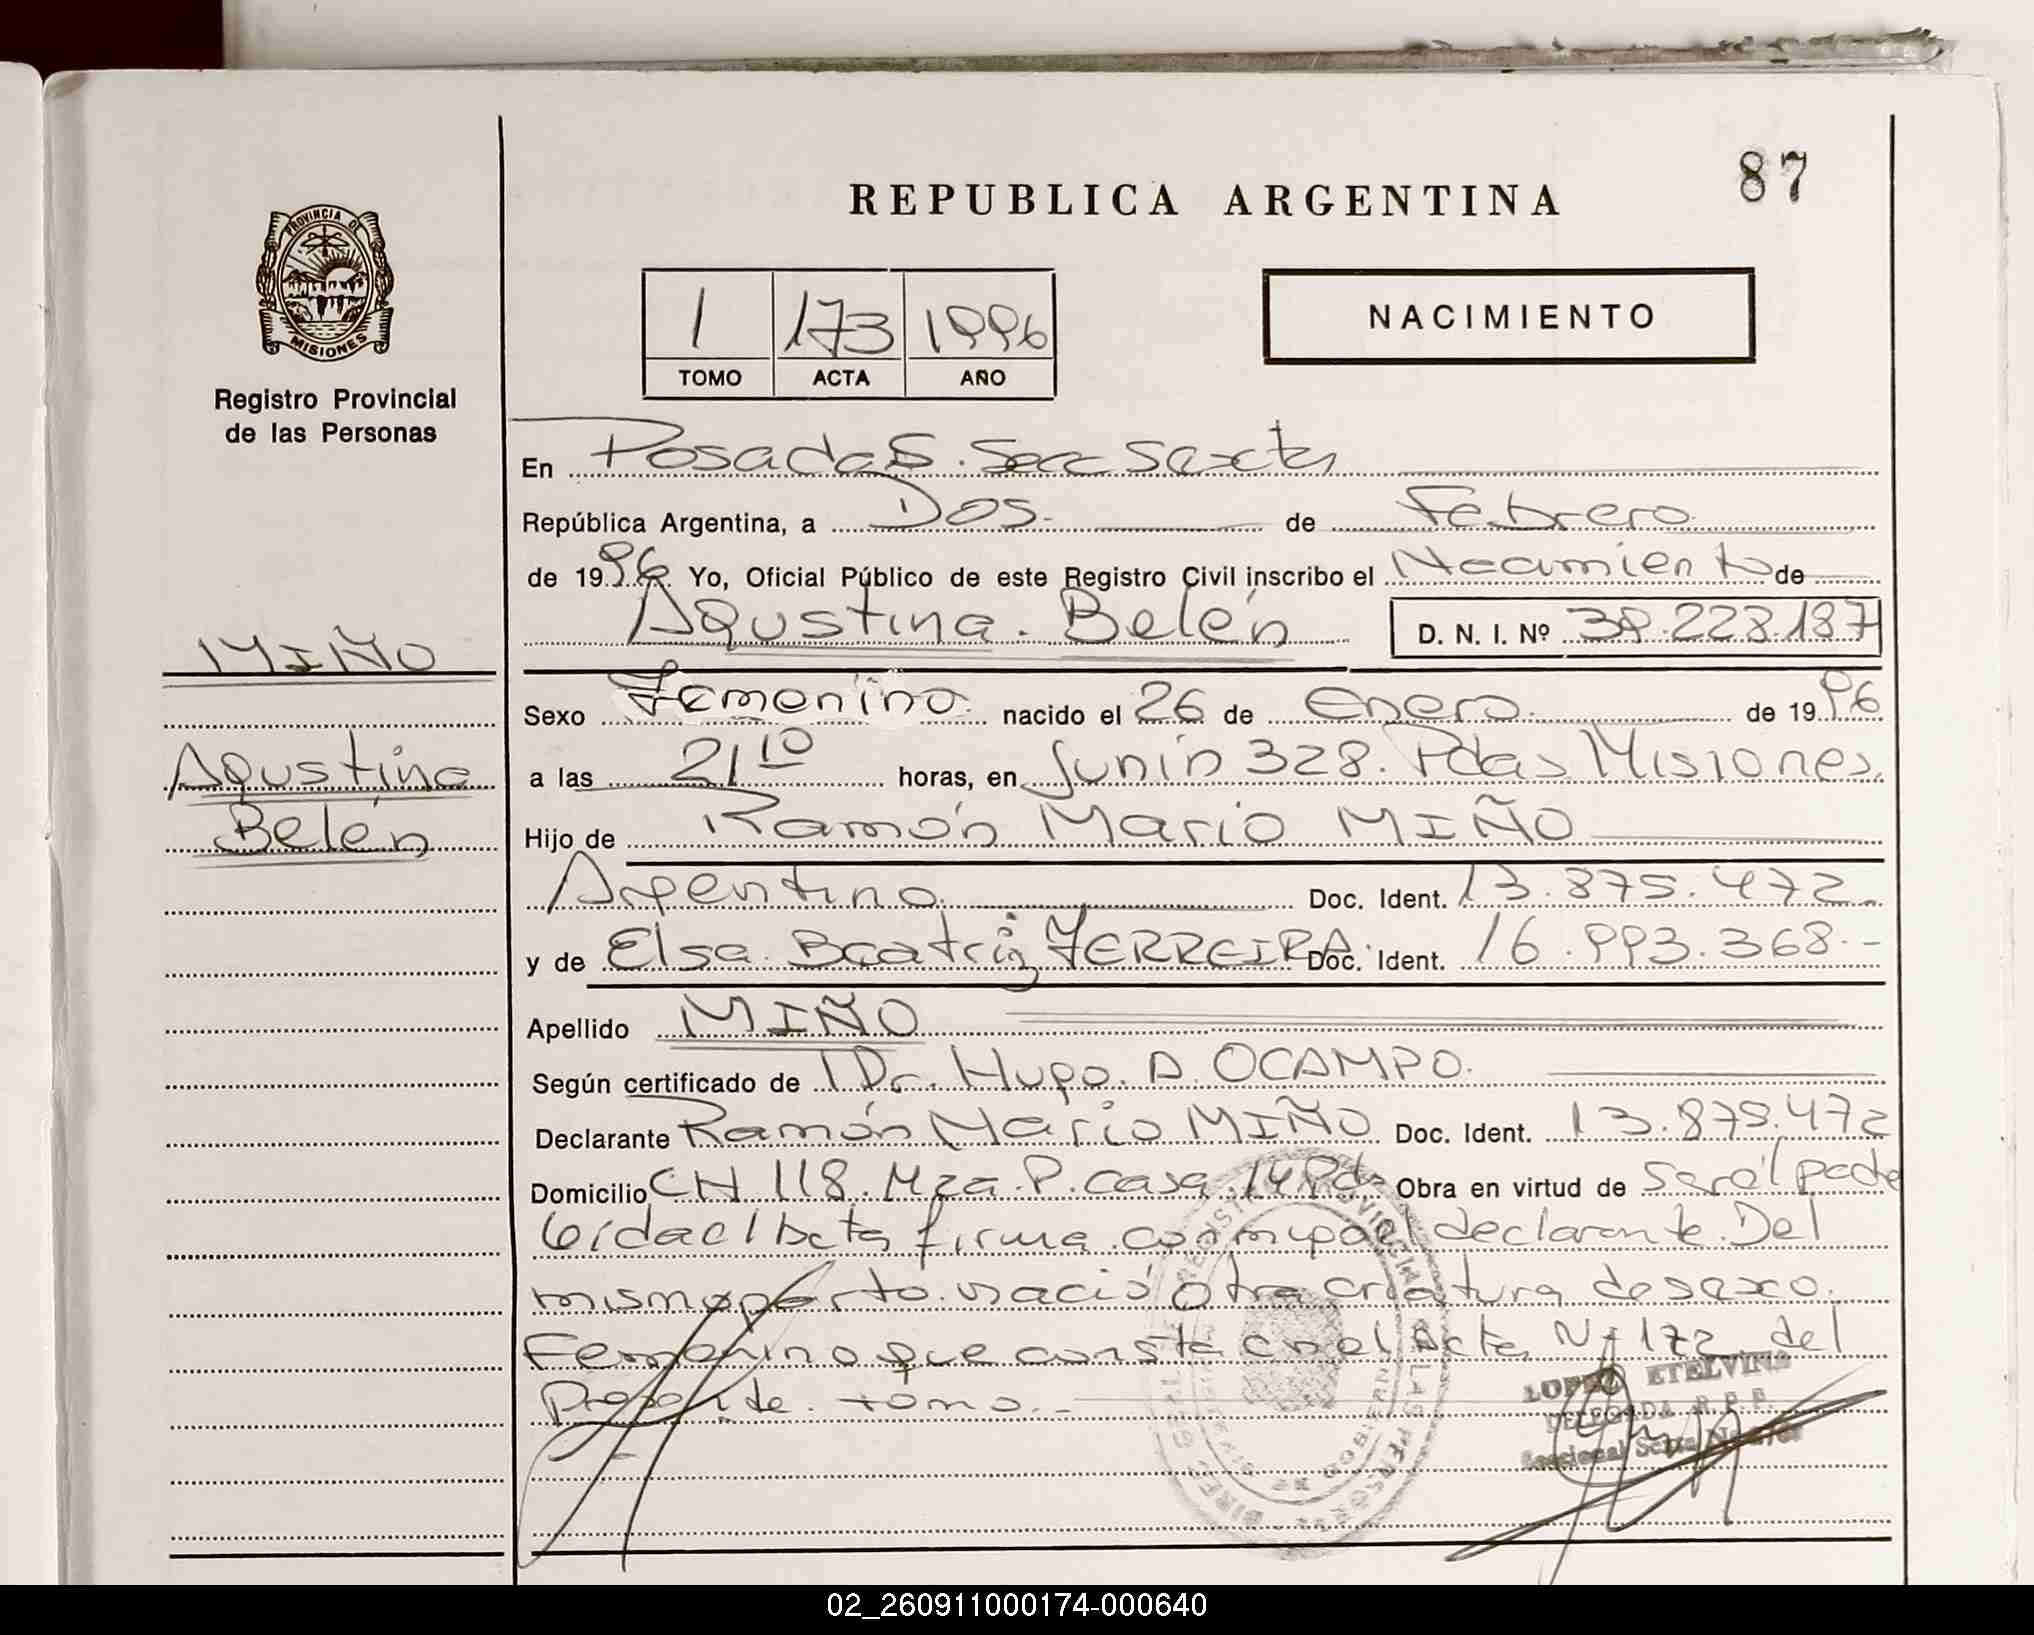 87
REPUBLICA ARGENTINA
PROVINCIA DE
MISIONES
Registro Provincial
de las Personas
1 173 1996
TOMO ACTA AÑO
NACIMIENTO
En Posadas. Secc Sexta
República Argentina, a Dos. de Febrero
de 1996. Yo, Oficial Público de este Registro Civil inscribo el Nacimiento de
Agustina. Belén D. N. I. Nº 39.223.187
MIÑO
Agustina
Belén
Sexo Femenino. nacido el 26 de Enero. de 1996
a las 21 10 horas, en Junín 328. Pdas Misiones.
Hijo de Ramón Mario MIÑO
Argentino. Doc. Ident. 13.875.472.
y de Elsa. Beatriz FERREIRA. Doc. Ident. 16.993.368.-
Apellido MIÑO
Según certificado de Dr. Hugo. A. OCAMPO.
Declarante Ramón Mario MIÑO Doc. Ident. 13.875.472
Domicilio CH 118. Mza. P. casa. 14 Pdas Obra en virtud de ser el padre
Leída el Acta firma conmigo el declarante. Del
mismo parto. nació otra criatura de sexo.
Femenino que consta en el Acta Nº 172 del
Presente. tomo.-
LOPEZ ETELVINA
DELEGADA R. P. P.
Seccional Sexta
02_260911000174-000640